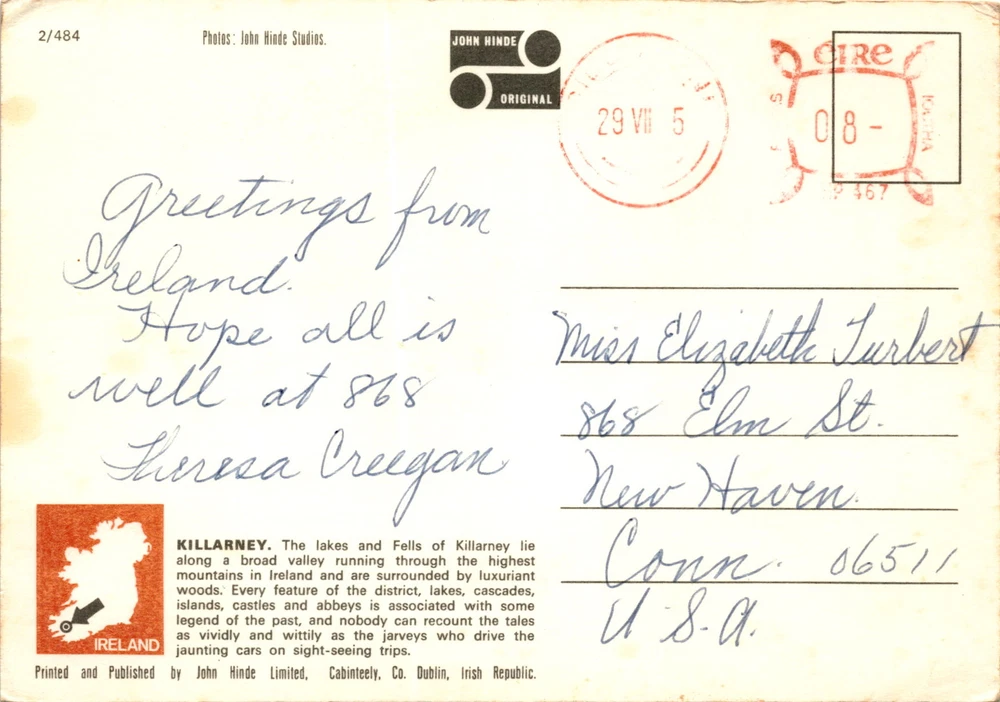 2/484
Photos: John Hinde Studios.
JOHN HINDE
ORIGINAL
29 VII 5
EIRE
08-
467
Greetings from
Ireland.
Hope all is
well at 868
Theresa Creegan
Miss Elizabeth Turbert
868 Elm St.
New Haven.
Conn. 06511
U.S.A.
IRELAND
KILLARNEY. The lakes and Fells of Killarney lie
along a broad valley running through the highest
mountains in Ireland and are surrounded by luxuriant
woods. Every feature of the district, lakes, cascades,
islands, castles and abbeys is associated with some
legend of the past, and nobody can recount the tales
as vividly and wittily as the jarveys who drive the
jaunting cars on sight-seeing trips.
Printed and Published by John Hinde Limited, Cabinteely, Co. Dublin, Irish Republic.